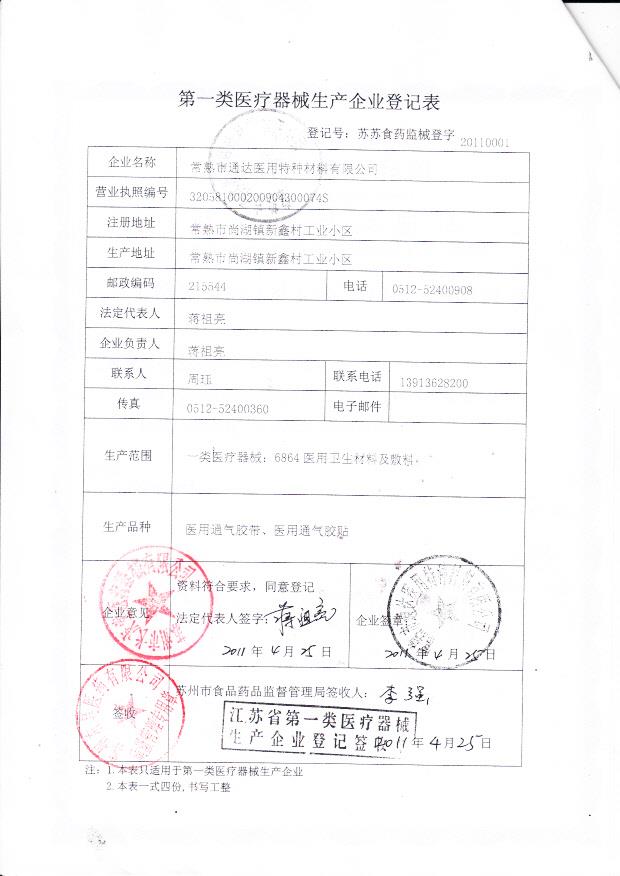 第一类医疗器械生产企业登记表
登记号：苏苏食药监械登字 20110001
企业名称 常熟市通达医用特种材料有限公司
营业执照编号 320581000200904300074S
注册地址 常熟市尚湖镇新鑫村工业小区
生产地址 常熟市尚湖镇新鑫村工业小区
邮政编码 215544 电话 0512-52400908
法定代表人 蒋祖亮
企业负责人 蒋祖亮
联系人 周珏 联系电话 13913628200
传真 0512-52400360 电子邮件
生产范围 一类医疗器械：6864医用卫生材料及敷料。
生产品种 医用通气胶带、医用通气胶贴
资料符合要求，同意登记
企业意见 法定代表人签字：蒋祖亮 企业签章
2011 年 4 月 25 日 2011 年 4 月 25 日
苏州市食品药品监督管理局签收人：李强
签收
江苏省第一类医疗器械
生产企业登记签 2011 年 4 月 25 日
注：1.本表只适用于第一类医疗器械生产企业
2.本表一式四份,书写工整